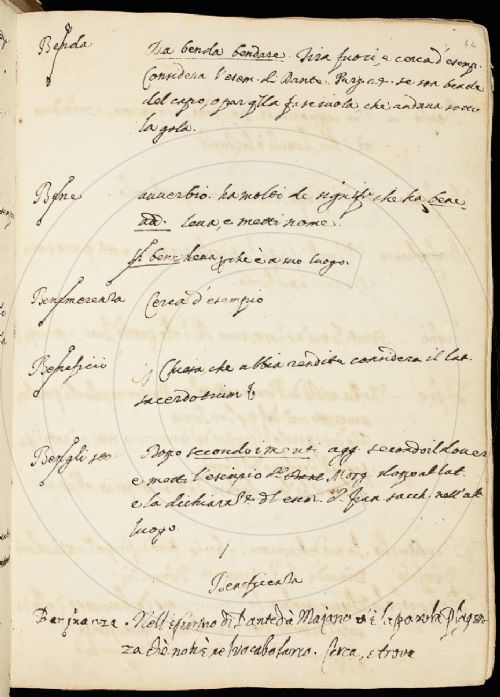 42
Benda Da benda bendare. Tira fuori, e cerca d'esemp.
Considera l'esem. di Dante. Purg. se son bende
del capo, o par qlla fasciuola che andava sotto
la gola.
Bene avverbio. ha molti de signifi. che ha bene
add. leva, e metti nome.
Il bene leva, che è a suo luogo.
Benemerenza Cerca d'esempio
Beneficio Chiesa che abbia rendite considera il lat.
sacerdotium
Dopo secondo i meriti agg. secondo il dover
e metti l'esempio Morg. dopo al lat.
e la dichiaraz. Fran. Sacch. nell'alt.
luogo.
Beneficenza
Nell' di Dante da Majano v'è la parola
za che non è nel vocabolario. Cerca, e trova